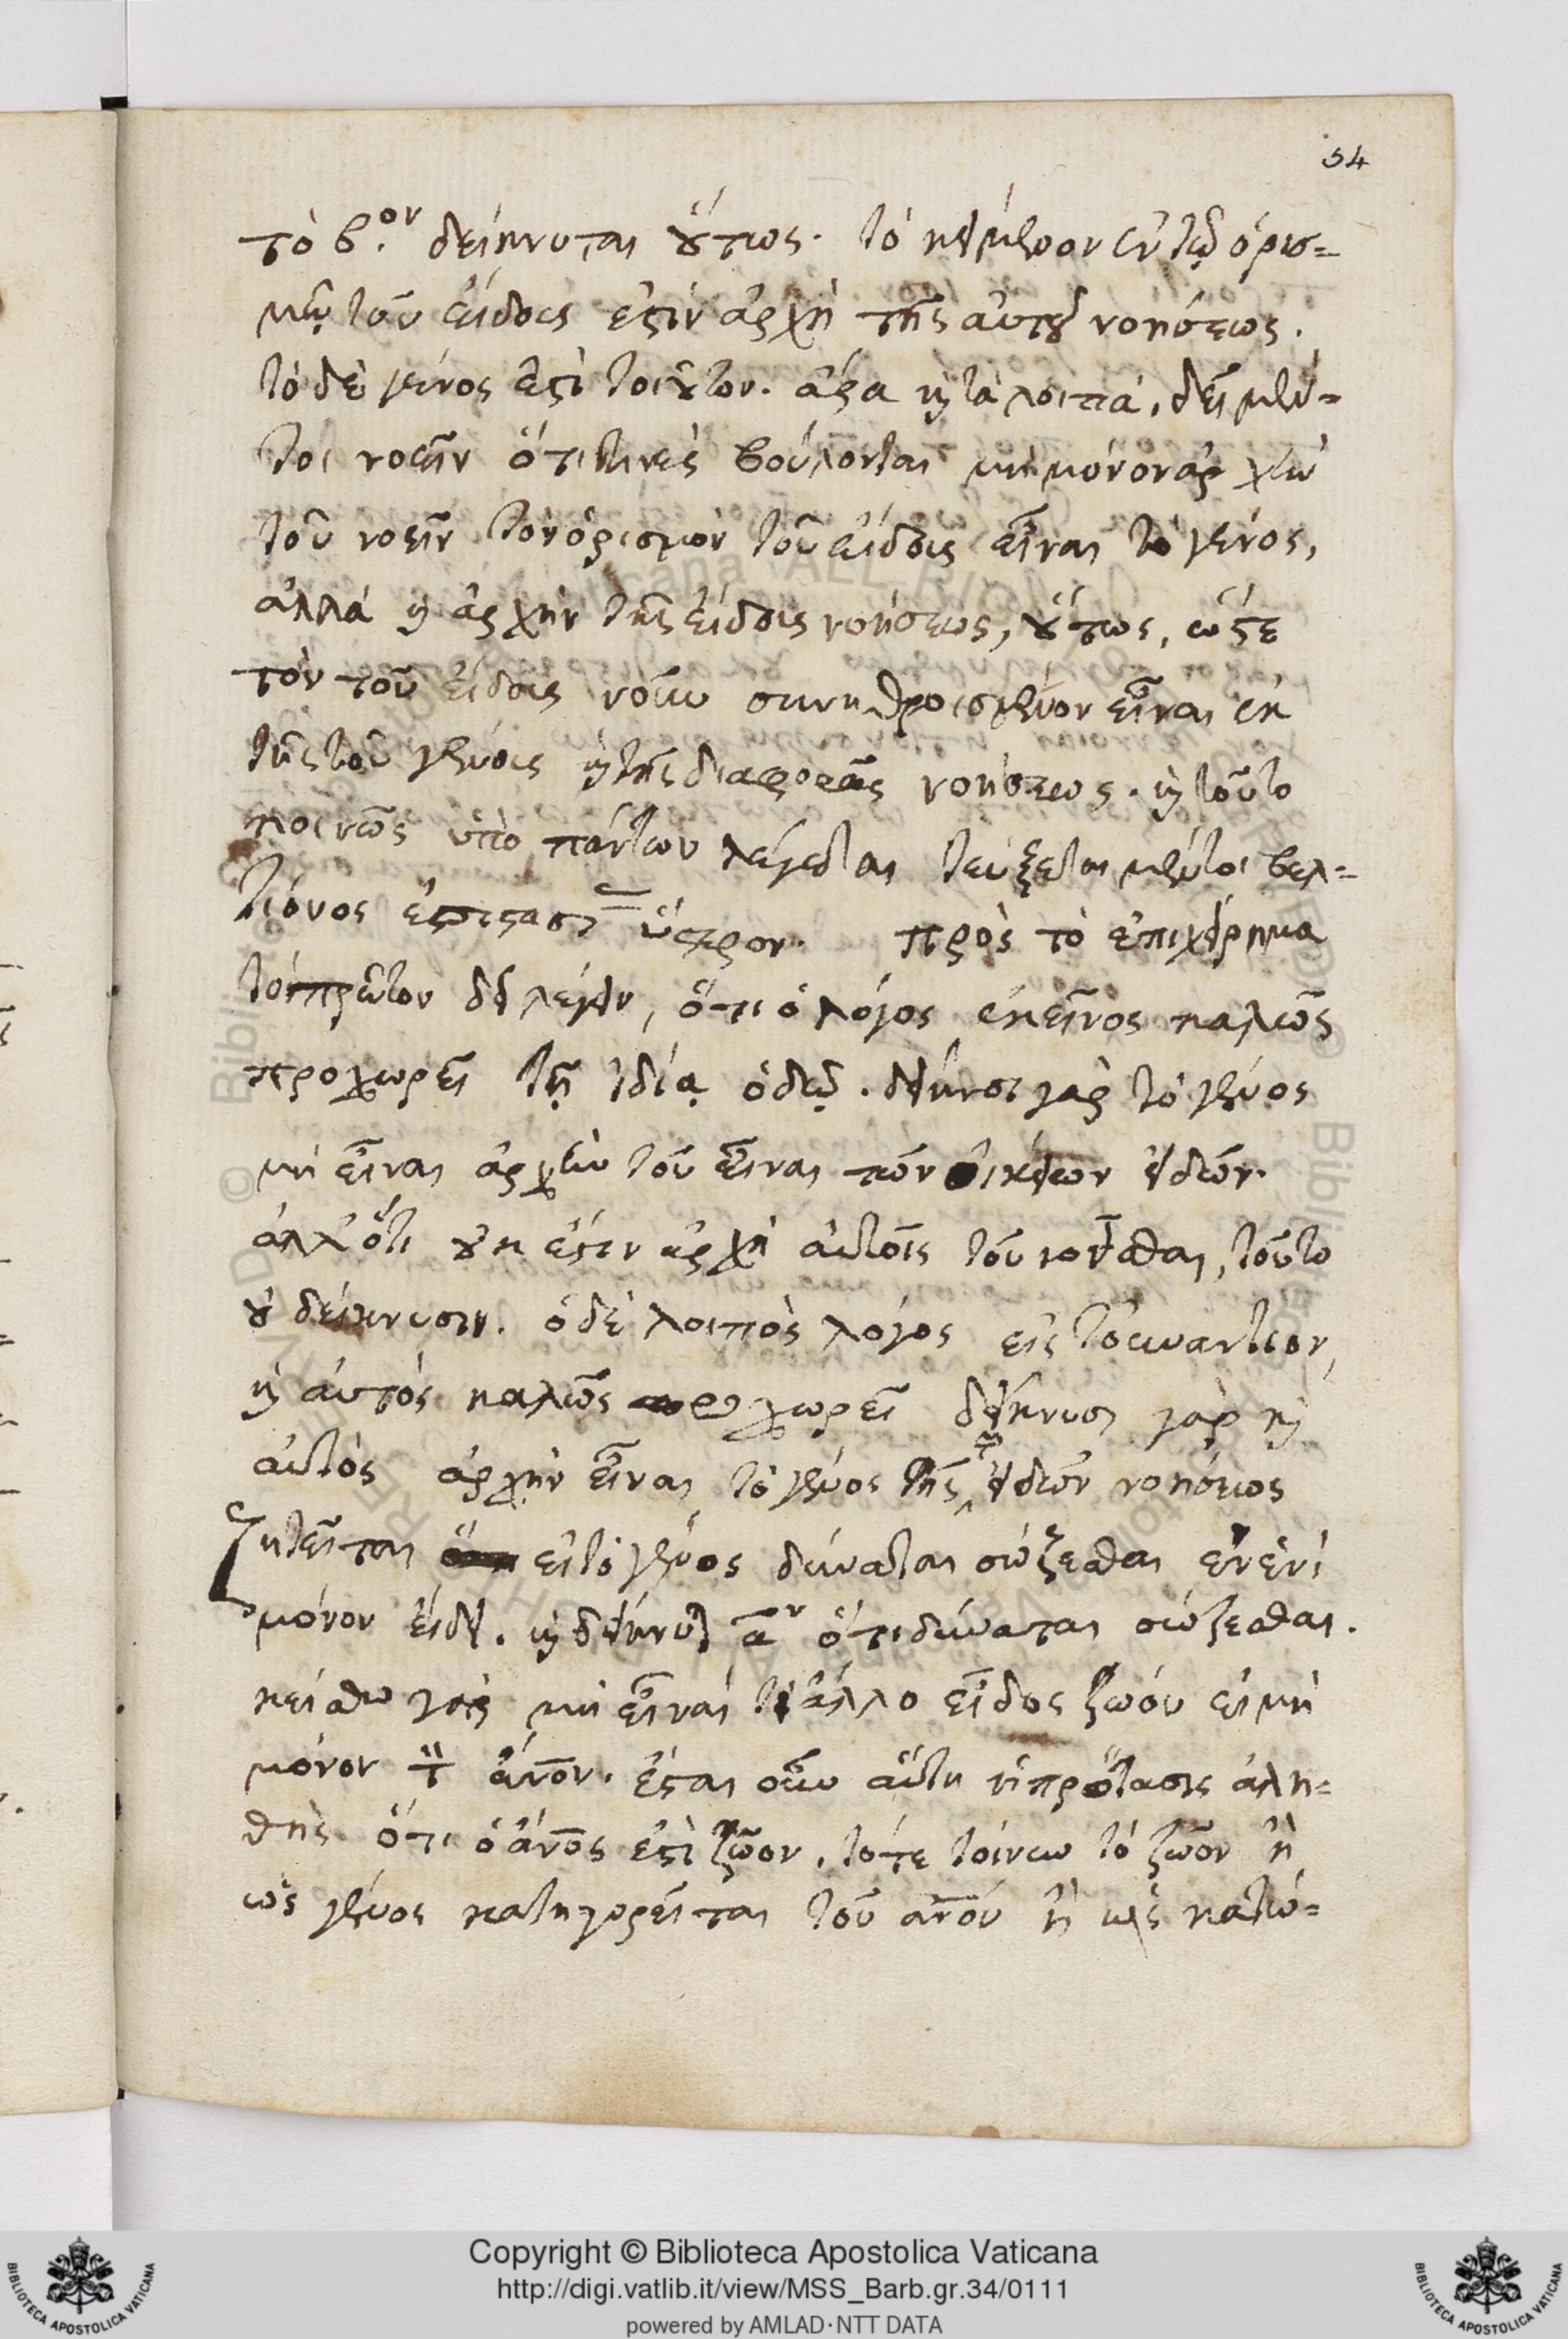 54
τὸ β.ον δείκνυται οὕτως. τὸ κείμενον ἐν τῷ ὁρισ=
μῷ τοῦ εἴδους ἐστὶν ἀρχὴ τῆς αὐτοῦ νοήσεως.
τὸ δὲ γένος ἐστὶ τοιοῦτον. ἄρα καὶ τὰ λοιπά. δεῖ μέν=
τοι νοεῖν ὅτι τινὲς βούλονται μὴ μόνον ἀρχὴν
τοῦ νοεῖν τὸν ὁρισμὸν τοῦ εἴδους εἶναι τὸ γένος,
ἀλλὰ καὶ ἀρχὴν τῆς εἴδους νοήσεως, οὕτως, ὥστε
τὸν τοῦ εἴδους νοῦν συνηθροισμένον εἶναι ἐκ
τῆς τοῦ γένους καὶ τῆς διαφορᾶς νοήσεως. καὶ τοῦτο
κοινῶς ὑπὸ πάντων λέγεται τεύξεται μέντοι βελ=
τίονος ὕστερον. πρὸς τὸ ἐπιχείρημα
τὸ πρῶτον δεῖ λέγειν, ὅτι ὁ λόγος ἐκεῖνος καλῶς
προχωρεῖ τῇ ἰδίᾳ ὁδῷ. δείκνυσι γὰρ τὸ γένος
μὴ εἶναι ἀρχὴν τοῦ εἶναι τῶν οἰκείων εἰδῶν.
ἀλλ' ὅτι οὐκ ἔστιν ἀρχὴ αὐτοῖς τοῦ νοεῖσθαι, τοῦτο
οὐ δείκνυσιν. ὁ δὲ λοιπὸς λόγος εἰς τὸ ἐναντίον,
καὶ αὐτὸς καλῶς προχωρεῖ δείκνυσι γὰρ καὶ
αὐτὸς ἀρχὴν εἶναι τὸ γένος τῆς τῶν εἰδῶν νοήσεως
Ζητεῖται εἰ τὸ γένος δύναται σώζεσθαι ἐν ἑνὶ
μόνον εἴδει. καὶ δείκνυται αον ὅτι δύναται σώζεσθαι.
κείσθω γὰρ μὴ εἶναί τι ἄλλο εἶδος ζώου εἰ μὴ
μόνον τ̈ ἄνον. ἔσται οὖν αὕτη ἡ πρότασις ἀλη=
θὴς ὅτι ὁ ἄνος ἐστὶ ζῶον. τότε τοίνυν τὸ ζῶον ἢ
ὡς γένος κατηγορεῖται τοῦ ἀνου ἢ ὡς κατώ=
Copyright © Biblioteca Apostolica Vaticana
http://digi.vatlib.it/view/MSS_Barb.gr.34/0111
powered by AMLAD·NTT DATA
BIBLIOTECA APOSTOLICA VATICANA
BIBLIOTECA APOSTOLICA VATICANA